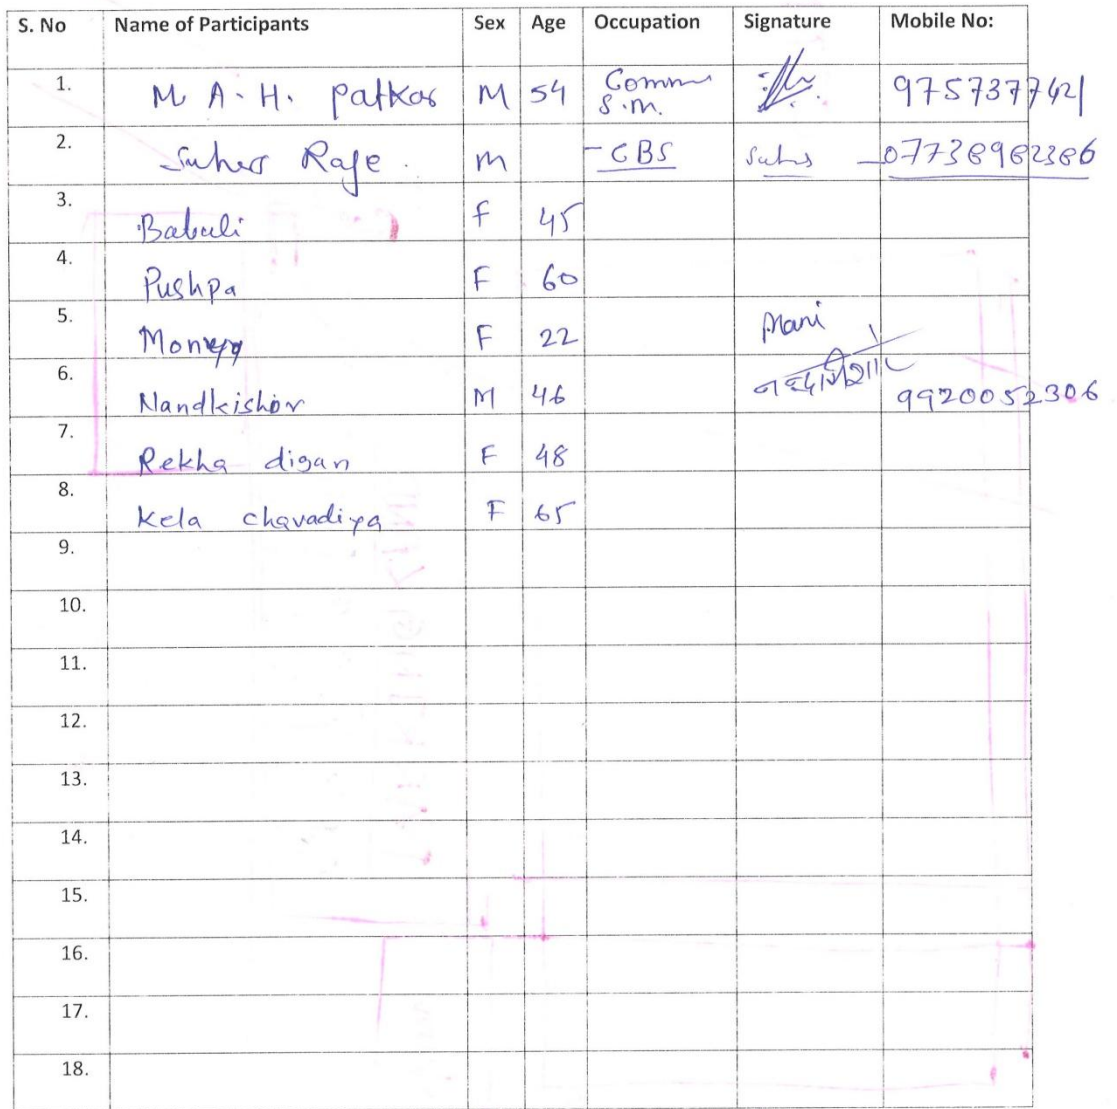 S. No Name of Participants Sex Age Occupation Signature Mobile No:
1. M. A. H. Patkar M 54 Comm 9757377421
S.M.
2. Suhas Raje. M - CBS Suhas - 07738982386
3. Babuli F 45
4. Pushpa F 60
5. F 22 Mani
6. Nandkishor M 46 9920052306
7. Rekha digan F 48
8. Kela chavadiya F 65
9.
10.
11.
12.
13.
14.
15.
16.
17.
18.